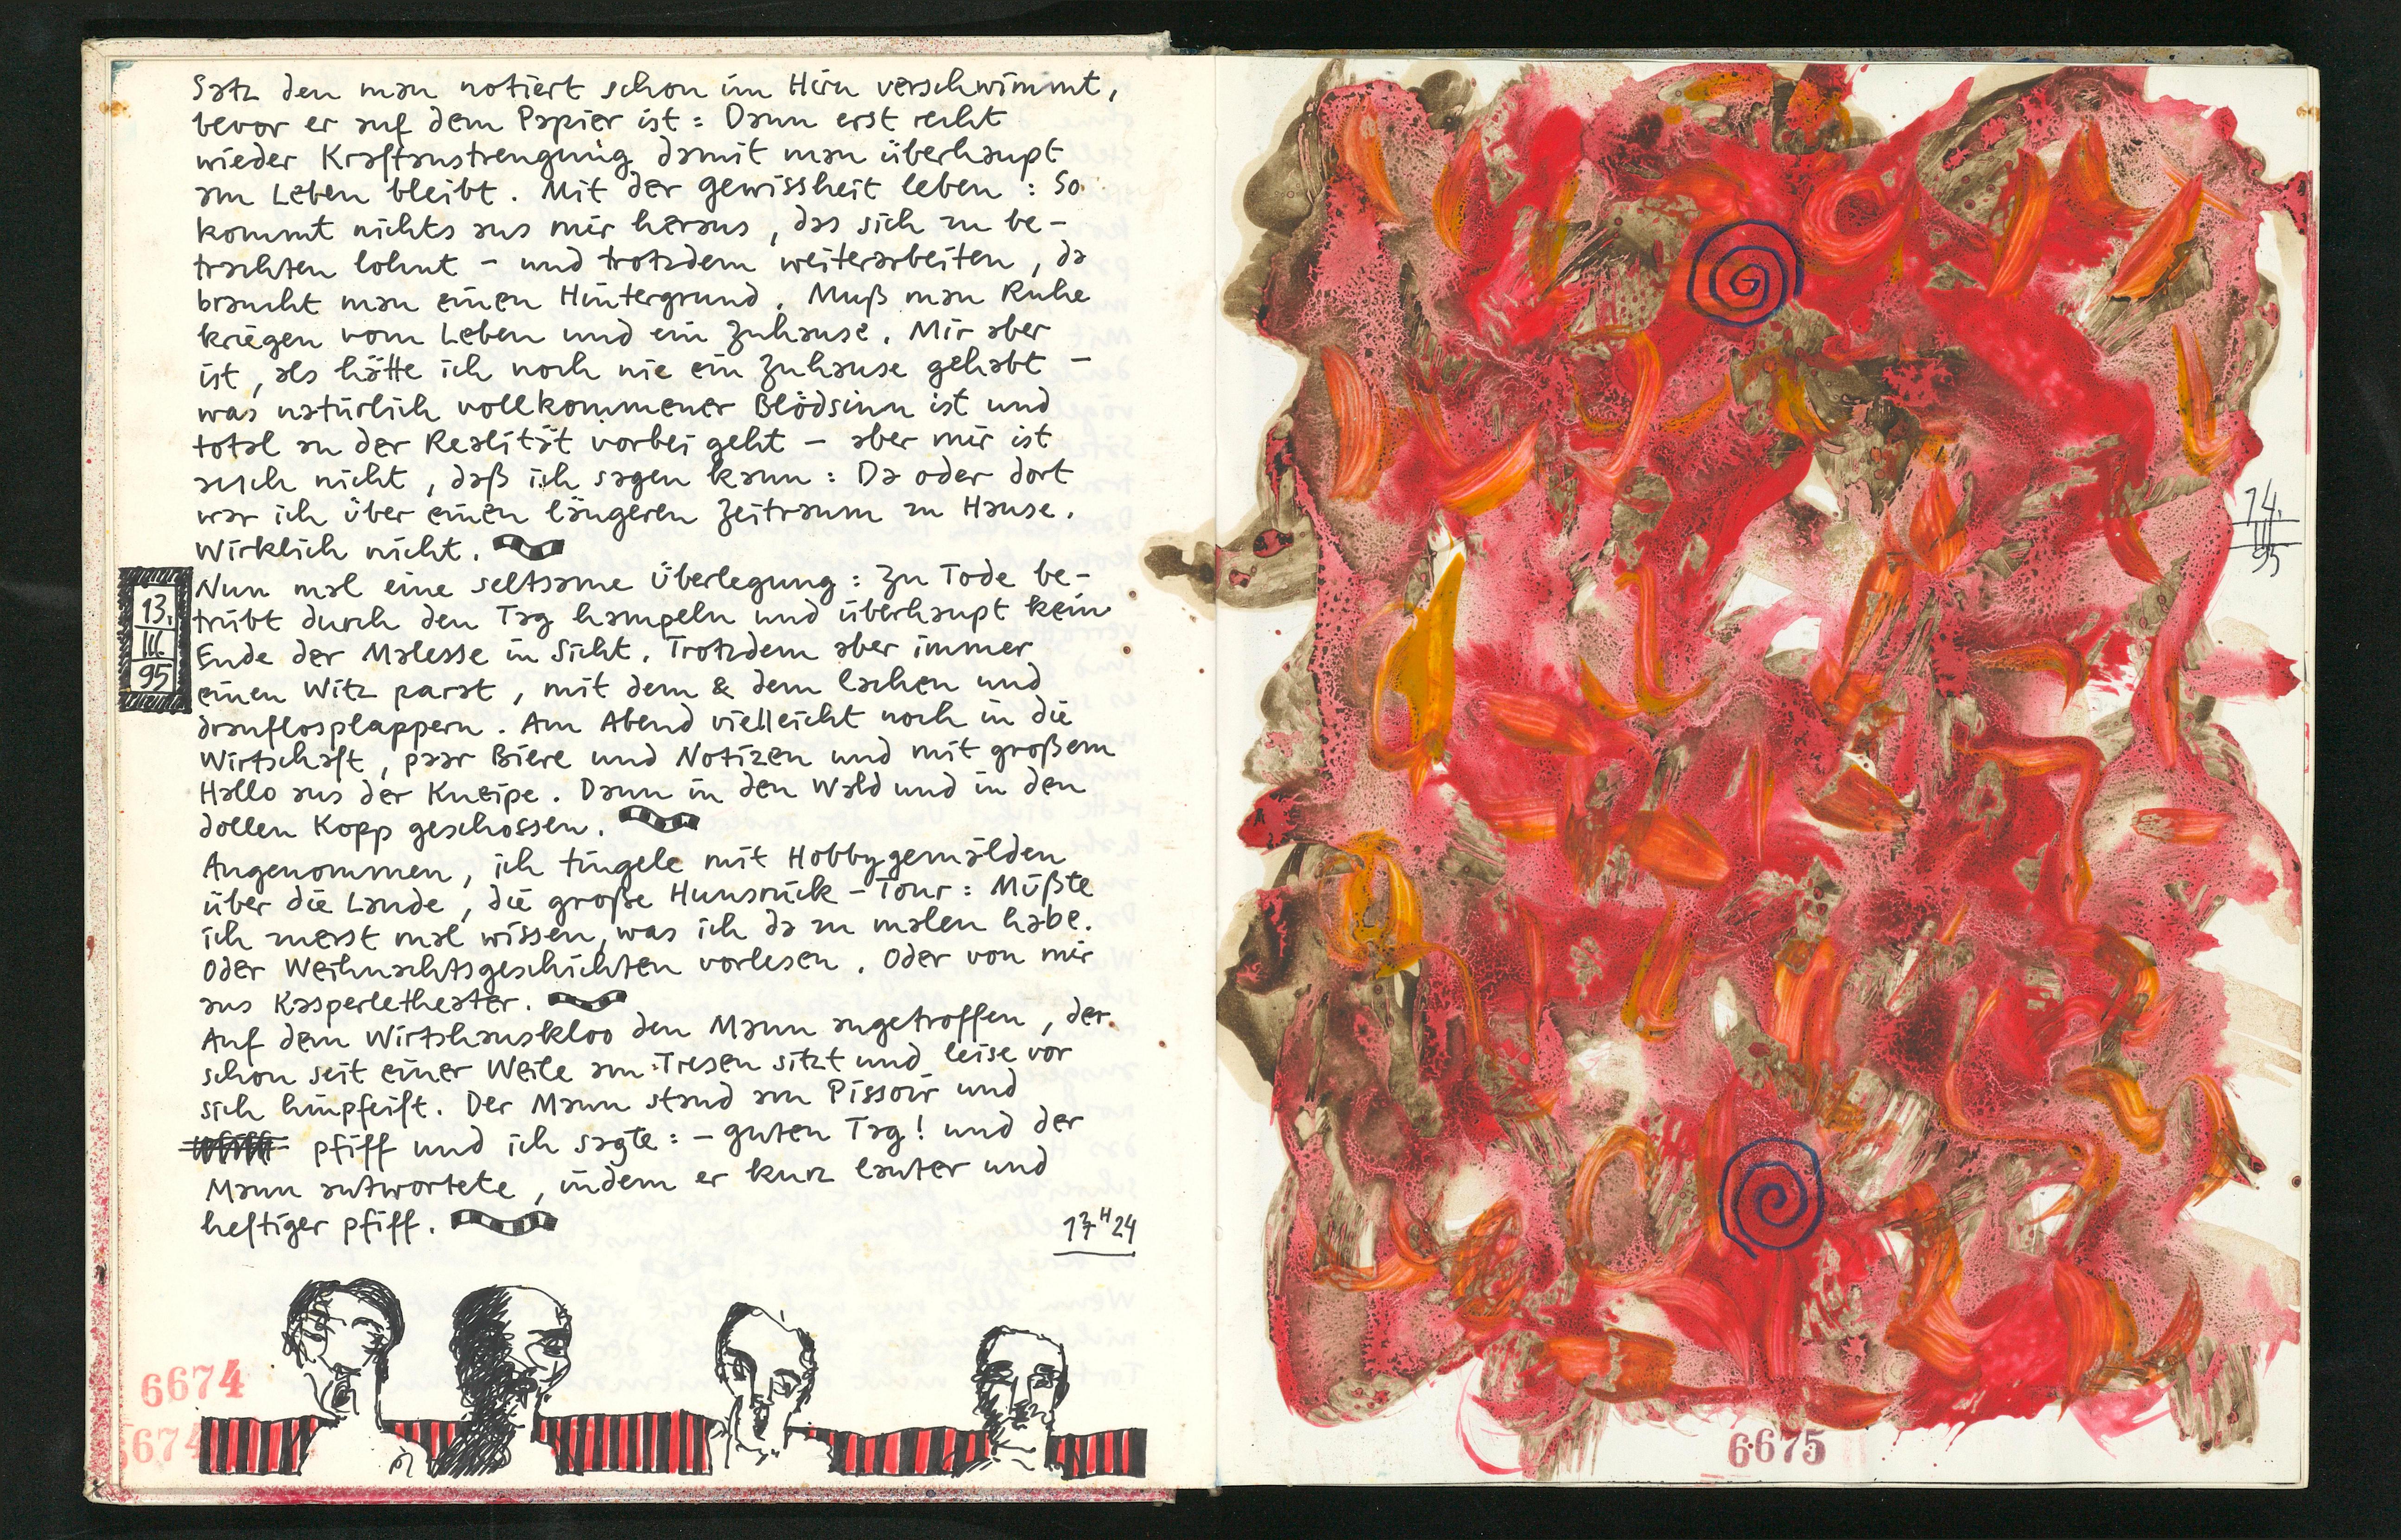 Satz den man notiert schon im Hirn verschwimmt,
bevor er auf dem Papier ist : Dann erst recht
wieder Kraftanstrengung damit man überhaupt
am Leben bleibt. Mit der gewissheit leben : So
kommt nichts aus mir heraus, das sich zu be-
trachten lohnt - und trotzdem weiterarbeiten, da
braucht man einen Hintergrund. Muß man Ruhe
kriegen vom Leben und ein Zuhause. Mir aber
ist, als hätte ich noch nie ein Zuhause gehabt -
was natürlich vollkommener Blödsinn ist und
total an der Realität vorbei geht - aber mir ist
auch nicht, daß ich sagen kann : Da oder dort
war ich über einen längeren Zeitraum zu Hause.
Wirklich nicht.
13.
III.
95
Nun mal eine seltsame Überlegung : Zu Tode be-
trübt durch den Tag hampeln und überhaupt kein
Ende der Malesse in Sicht. Trotzdem aber immer
einen Witz parat, mit dem & dem lachen und
drauflosplappern. Am Abend vielleicht noch in die
Wirtschaft, paar Biere und Notizen und mit großem
Hallo aus der Kneipe. Dann in den Wald und in den
dollen Kopp geschossen.
Angenommen, ich tingele mit Hobbygemälden
über die Lande, die große Hunsrück-Tour : Müßte
ich zuerst mal wissen, was ich da zu malen habe.
Oder Weihnachtsgeschichten vorlesen. Oder von mir
aus Kasperletheater.
Auf dem Wirtshauskloo den Mann angetroffen, der
schon seit einer Weile am Tresen sitzt und leise vor
sich hinpfeift. Der Mann stand am Pissoir und
pfiff und ich sagte : - guten Tag! und der
Mann antwortete, indem er kurz lauter und
heftiger pfiff.
17H24
6674
674
14.
III
95
6675